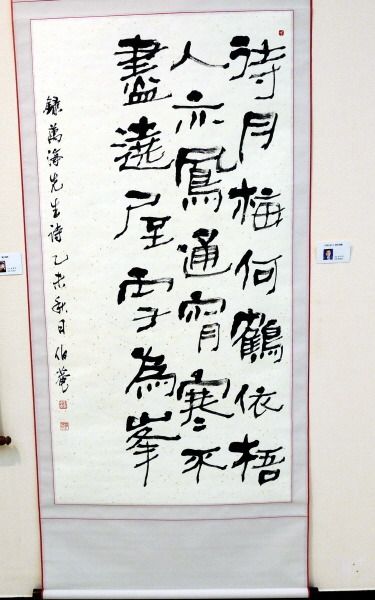 待月梅何鶴依梧
人亦鳳通宵寒不
盡遶屋雪為峯
錄萬海先生诗乙未秋日伯菴